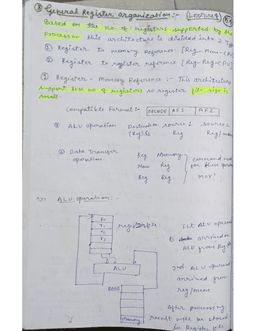 ③ General Register organization :- (Lecture 4)
Based on the no of registers supported by the
processor this architecture is divided into 2
① Register to memory Reference [Reg-Mem-
② Register to register reference [Reg-Reg
① Register - Memory Reference :- This architecture
support less no of registers so register file size is
small.
Compatible Format :- OPCODE AF1 AF2
① ALU operation Destination source 1 source 2
Reg Reg/mem
② Data Transfer
operation
Reg Memory
Mem Reg
Reg Reg
command used
for
MOV
ALU operation :-
r0
r1
r2
Register file
ALU
1st ALU
is arrived
ALU from Reg
2nd ALU operand
arrived from
reg/mem
After processing
result will be stored
in Register file
Memory